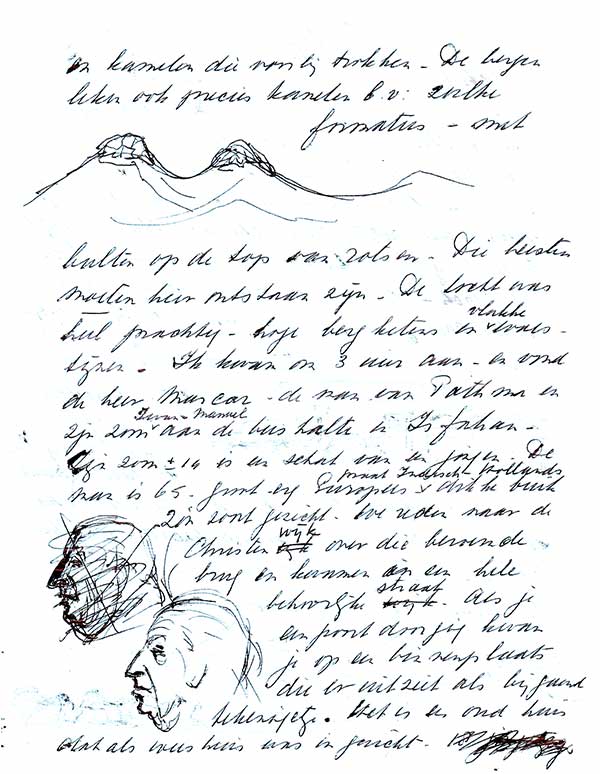 en kamelen die voorbij trokken - De bergen
leken ook precies kamelen b.v: zulke
formaties - met
bulten op de top van rotsen - Die beesten
moeten hier ontstaan zijn - De tocht was
heel prachtig - hoge berg ketens en vlakke woes-
tijnen. Ik kwam om 3 uur aan - en vond
de heer Mascar - de man van Pathma en
zijn zoon Iwan-Manuel aan de bus halte in Isfahan -
Zijn zoon ± 14 is een schat van een jongen. De
man is 65 - groot erg Europees praat Indisch-Hollands dikke buik
Zo'n soort gezicht - We reden naar de
Christen wijk over die beroemde
brug en kwamen op een hele
behoorlijke straat. Als je
een poort door ging kwam
je op een binnenplaats
die er uitziet als bijgaand
tekeningetje. Het is een oud huis
dat als weeshuis was in gericht.